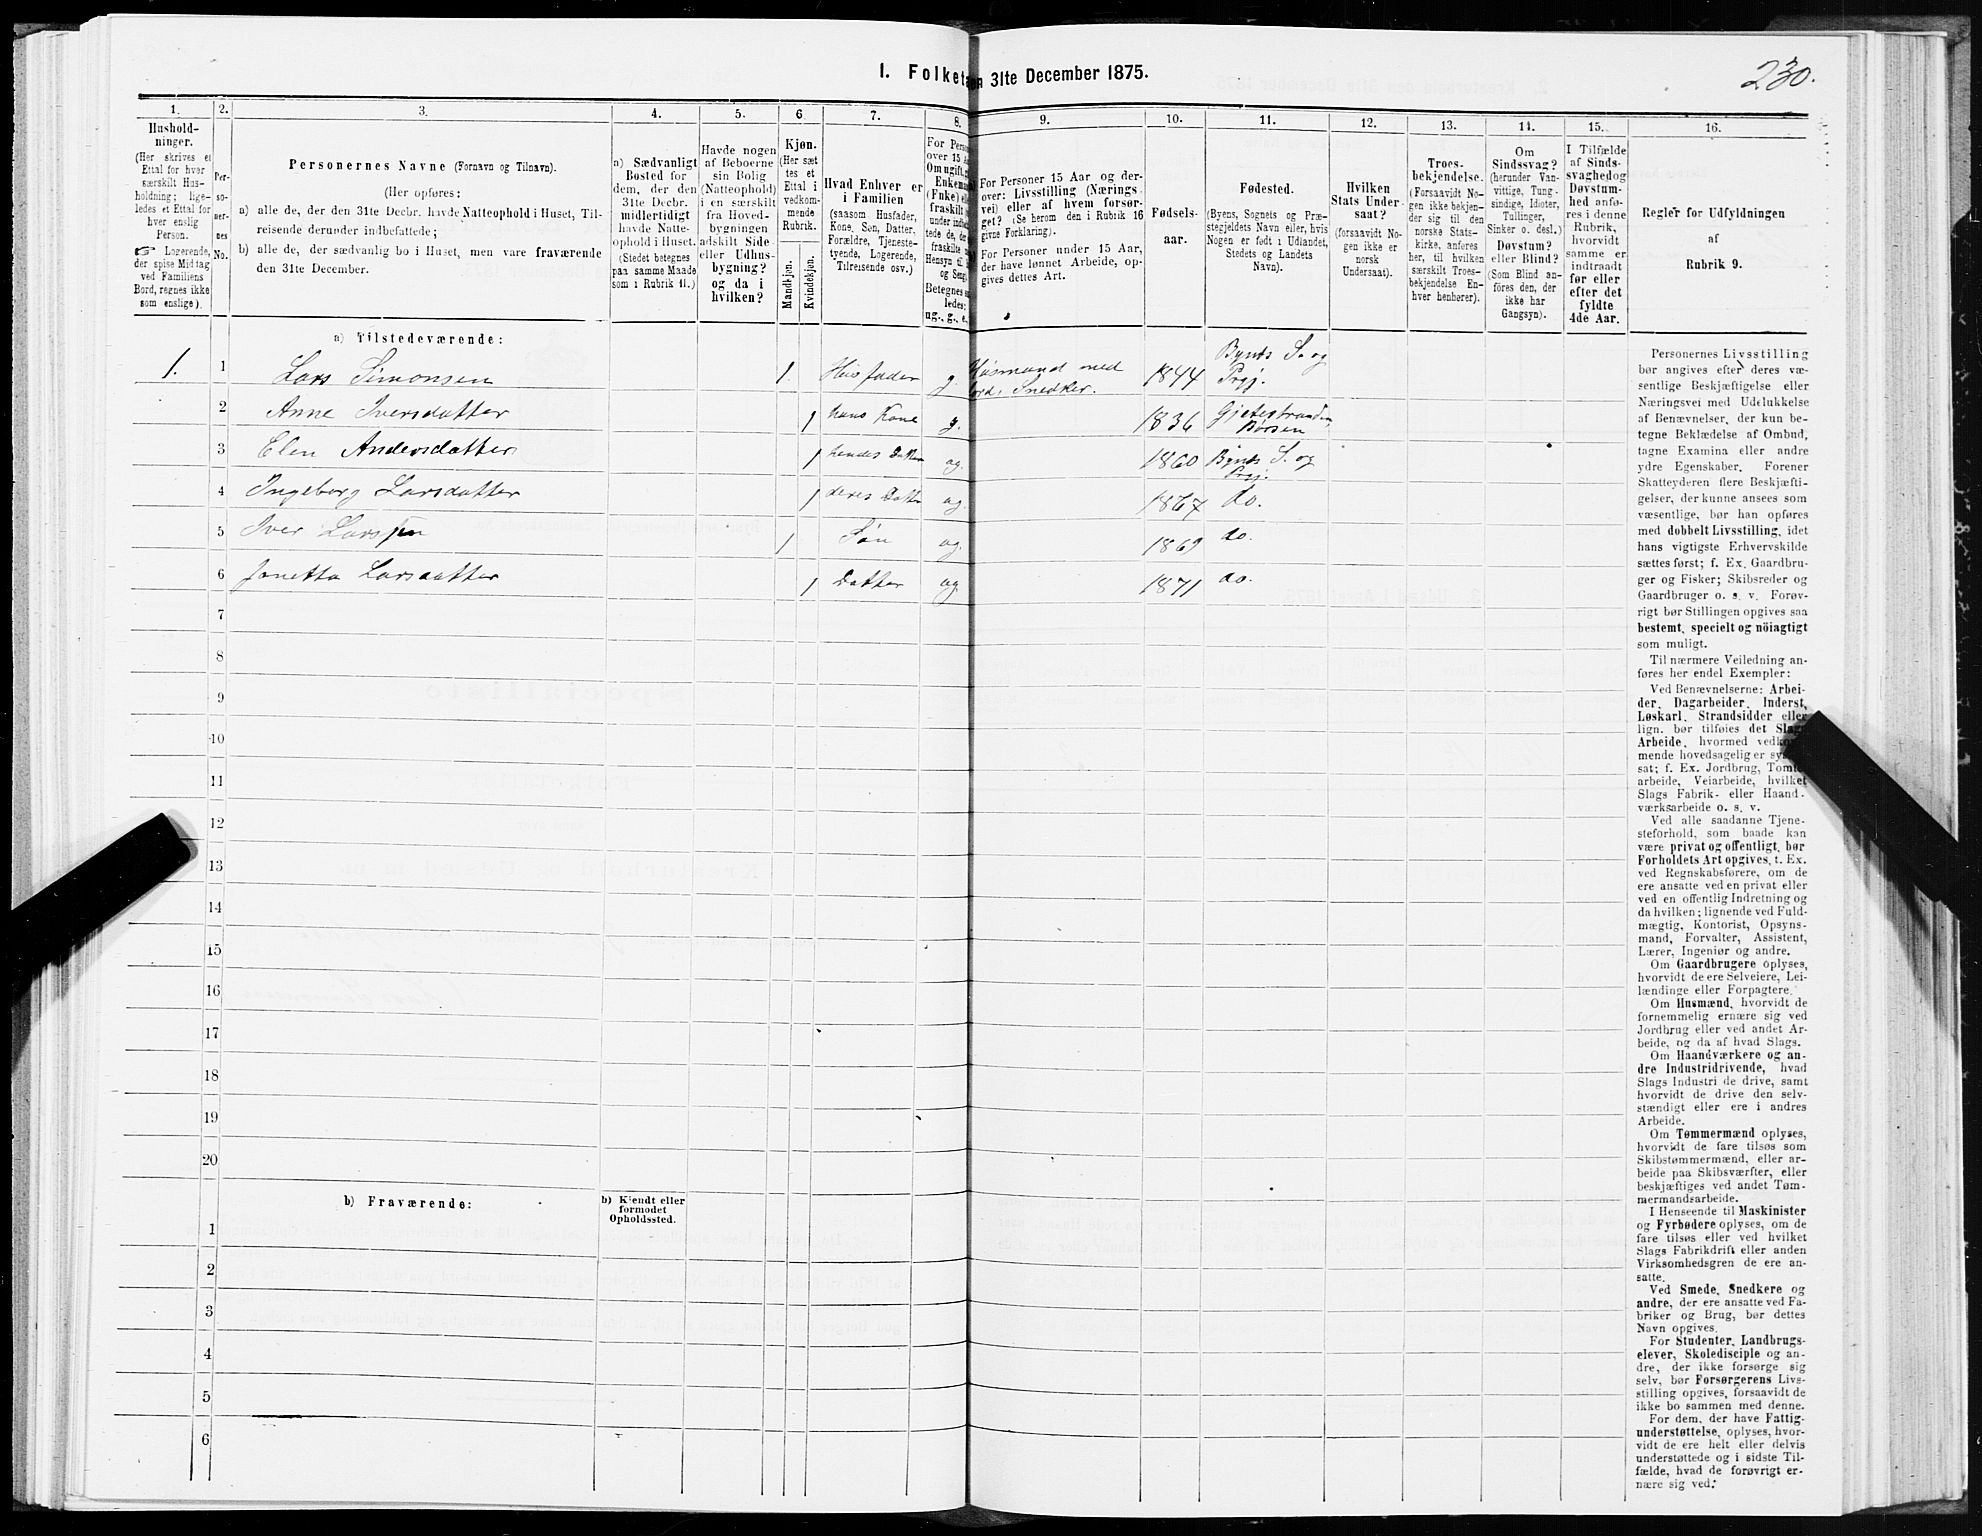 I. Folketa   en 31te December 1875.
230.
1.
2.
3.
4.
5.
6
7.
8.
9.
10.
11.
12.
13.
14.
15.
16.
Hushold-
ninger.
(Her skrives et
Ettal for hver
særskilt Hus-
holdning; lige-
ledes et Ettal for
hver enslig
Person.
☞ Logerende,
der spise Middag
ved Familiens
Bord, regnes ikke
som enslige).
Per-
so-
ner-
nes
No.
Personernes Navne (Fornavn og Tilnavn).
(Her opføres:
a) alle de, der den 31te Decbr. havde Natteophold i Huset, Til-
reisende derunder indbefattede;
b) alle de, der sædvanlig bo i Huset, men vare fraværende
den 31te December.
a) Sædvanligt
Bosted for
dem, der den
31te Decbr.
midlertidigt
havde Natte-
ophold i Huset.
(Stedet betegnes
paa samme Maade
som i Rubrik 11.)
Havde nogen
af Beboerne
sin Bolig
(Natteophold)
i en særskilt
fra Hoved-
bygningen
adskilt Side-
eller Udhus-
bygning?
og da i
hvilken?
Kjøn.
(Her sæt-
tes et
Ettal i
vedkom-
mende
Rubrik.
Mandkjøn.
Kvindekjøn.
Hvad Enhver er
i Familien
(saasom Husfader,
Kone, Søn, Datter,
Forældre, Tjeneste-
tyende, Logerende,
Tilreisende osv.)
For Perso
over 15 Aa
Om ugift, g
Enkema
(Enke) el
fraskilt
under indbe
tede de, de
fraskilte
Hensyn til
og Seng.
Betegnes
ledes:
ug., g., e.
For Personer 15 Aar og der-
over: Livsstilling (Nærings-
vei) eller af hvem forsør-
get? (Se herom den i Rubrik 16
givne Forklaring).
For Personer under 15 Aar,
der have lønnet Arbeide, op-
gives dettes Art.
Fødsels-
aar.
Fødested.
(Byens, Sognets og Præ-
stegjeldets Navn eller, hvis
Nogen er født i Udlandet,
Stedets og Landets
Navn).
Hvilken
Stats Under-
saat?
(forsaavidt No-
gen ikke er
norsk
Undersaat).
Troes-
bekjendelse.
(Forsaavidt No-
gen ikke bekjen-
der sig til den
norske Stats-
kirke, anføres
her, til hvilken
særskilt Troes-
bekjendelse En-
hver henhører).
Om
Sindssvag?
(herunder Van-
vittige, Tung-
sindige, Idioter,
Tullinger,
Sinker o. desl.)
Døvstum?
eller Blind?
(Som Blind an-
føres den, der
ikke har
Gangsyn).
I Tilfælde
af Sinds-
svaghed og
Døvstum-
hed anfø-
res i denne
Rubrik,
hvorvidt
samme er
indtraadt
før eller
efter det
fyldte
4de Aar.
Regler for Udfyldningen
af
Rubrik 9.
a) Tilstedeværende:
1. 1 Lars Simonsen 1. Husfader g. Husmand med Jord. Snedker. 1844 Bynes S. og Prgj.
2 Anne Iversdatter 1 hans Kone g. 1836 Gjetestranden Børsen
3 Elen Andersdatter 1 hendes Datter ug. 1860 Bynes S. og Prgj.
4 Ingeborg Larsdatter 1 deres Datter ug. 1867 do.
5 Iver Larssen 1 Søn ug. 1869 do.
6 Janetta Larsdatter 1 Datter ug. 1871 do.
7
8
9
10
11
12
13
14
15
16
17
18
19
20
b) Fraværende:
b) Kjendt eller
formodet
Opholdssted.
1
2
3
4
5
6
Personernes Livsstilling
bør angives efter deres væ-
sentlige Beskjæftigelse eller
Næringsvei med Udelukkelse
af Benævnelser, der kun be-
tegne Beklædelse af Ombud,
tagne Examina eller andre
ydre Egenskaber. Forener
Skatteyderen flere Beskjæfti-
gelser, der kunne ansees som
væsentlige, bør han opføres
med dobbelt Livsstilling, idet
hans vigtigste Erhvervskilde
sættes først; f. Ex. Gaardbru-
ger og Fisker; Skibsreder og
Gaardbruger o. s. v. Forøv-
rigt bør Stillingen opgives saa
bestemt, specielt og nöiagtigt
som muligt.
Til nærmere Veiledning an-
føres her endel Exempler:
Ved Benævnelserne: Arbei-
der, Dagarbeider, Inderst,
Løskarl, Strandsidder eller
lign. bør tilføies det Slags
Arbeide, hvormed vedkom-
mende hovedsagelig er syssel-
sat; f. Ex. Jordbrug, Tomte-
arbeide, Veiarbeide, hvilket
Slags Fabrik- eller Haand-
værksarbeide o. s. v.
Ved alle saadanne Tjene-
steforhold, som baade kan
være privat og offentligt, bør
Forholdets Art opgives, t. Ex.
ved Regnskabsførere, om de
ere ansatte ved en privat eller
ved en offentlig Indretning og
da hvilken; lignende ved Fuld-
mægtig, Kontorist, Opsyns-
mand, Forvalter, Assistent,
Lærer, Ingeniør og andre.
Om Gaardbrugere oplyses,
hvorvidt de ere Selveiere, Lei-
lændinge eller Forpagtere.
Om Husmænd, hvorvidt de
fornemmelig ernære sig ved
Jordbrug eller ved andet Ar-
beide, og da af hvad Slags.
Om Haandværkere og an-
dre Industridrivende, hvad
Slags Industri de drive, samt
hvorvidt de drive den selv-
stændigt eller ere i andres
Arbeide.
Om Tømmermænd oplyses,
hvorvidt de fare tilsøs som
Skibstømmermænd, eller ar-
beide paa Skibsværfter, eller
beskjæftiges ved andet Tøm-
mermandsarbeide.
I Henseende til Maskinister
og Fyrbødere oplyses, om de
fare tilsøs eller ved hvilket
Slags Fabrikdrift eller anden
Virksomhedsgren de ere an-
satte.
Ved Smede, Snedkere og
andre, der ere ansatte ved Fa-
briker og Brug, bør dettes
Navn opgives.
For Studenter, Landbrugs-
elever, Skoledisciple og an-
dre, der ikke forsørge sig
selv, bør Forsørgerens Livs-
stilling opgives, forsaavidt de
ikke bo sammen med denne.
For dem, der have Fattig-
understøttelse, oplyses, hvor-
vidt de ere helt eller delvis
understøttede og i sidste Til-
fælde, hvad de forøvrigt er-
nære sig ved.